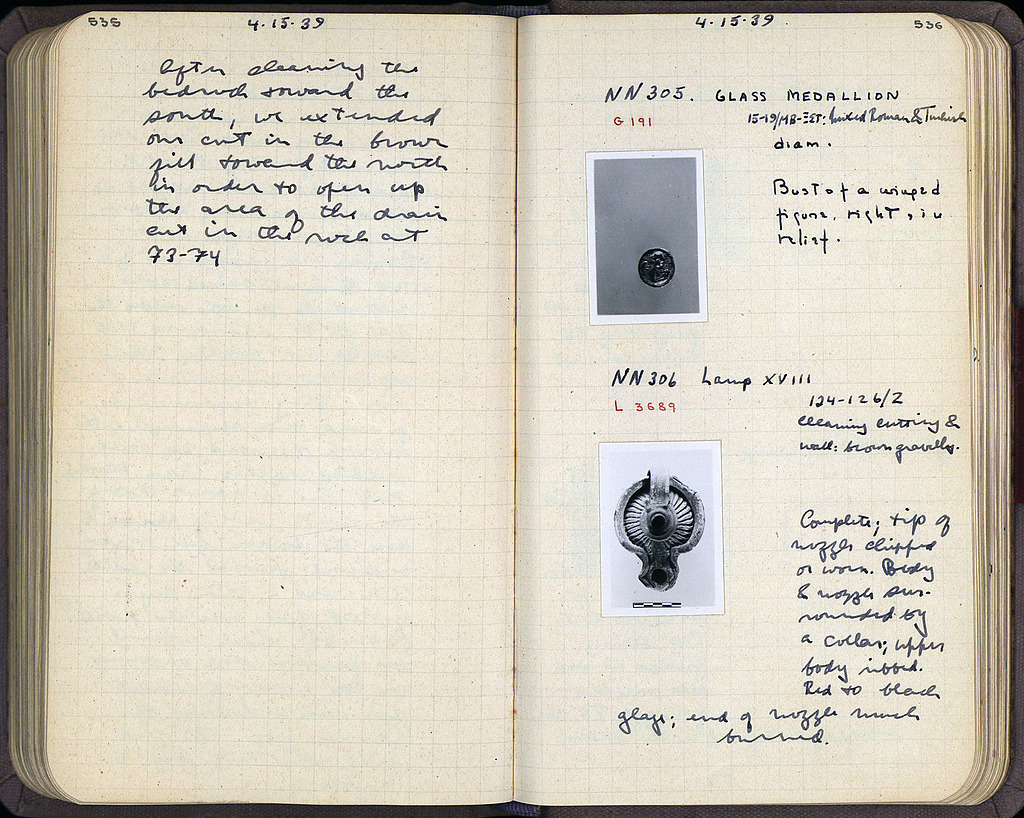 535
4·15·39
After cleaning the
bedrock toward the
south, we extended
our cut in the brown
fill toward the north
in order to open up
the area of the drain
cut in the rock at
73-74
4·15·39.
536
NN 305. GLASS MEDALLION
G 191
15-19/ΜΒ-ΞΣΤ: Mixed Roman & Turkish
diam.
Bust of a winged
figure, right, in
relief.
NN 306 Lamp XVIII
L 3689
124-126/Z
cleaning cutting &
wall: brown gravelly.
Complete; tip of
nozzle chipped
or worn. Body
& nozzle sur-
rounded by
a collar; upper
body ribbed.
Red to black
glaze; end of nozzle much
burned.